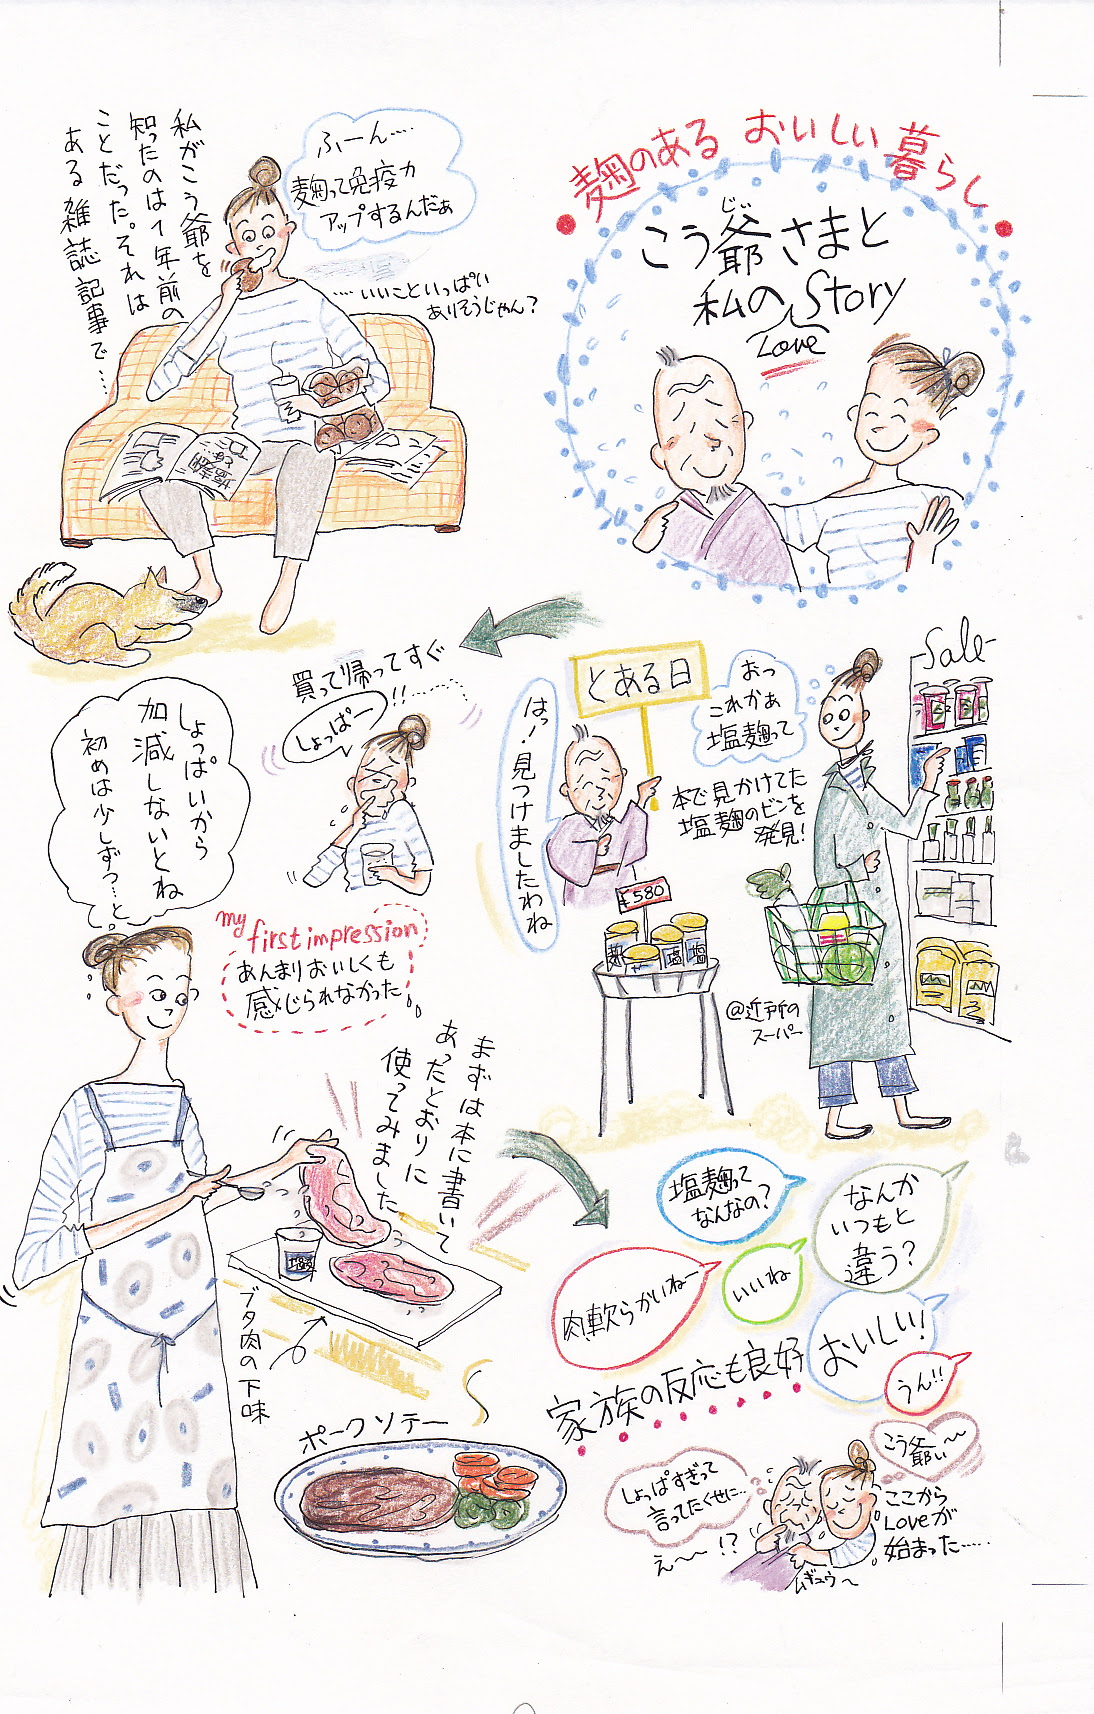 麹のある おいしい暮らし
じい
こう爺さまと
私のStory
Love
私がこう爺を
知ったのは1年前の
ことだった。それは
ある雑誌記事で…
ふーん….
麹って免疫力
アップするんだぁ
….いいこといっぱい
ありそうじゃん？
とある日
はっ！見つけましたわね
おっ
これかぁ
塩麹って
本で見かけてた
塩麹のビンを
発見！
Sale
¥580
塩
塩
@近所の
スーパー
買って帰ってすぐ
!!
しょっぱー
my
first impression
あんまりおいしくも
感じられなかった
しょっぱいから
加減しないとね
初めは少しずつ…と
まずは本に書いて
あったとおりに
使ってみました
ブタ肉の下味
ポークソテー
塩麹って
なんなの？
なんか
いつもと
違う？
肉軟らかいねー
いいね
おいしい！
うん!!
家族の反応も良好
しょっぱすぎって
言ってたくせに…
え〜〜!?
こう爺ぃ〜〜
ここから
Loveが
始まった……
ムギュウ〜